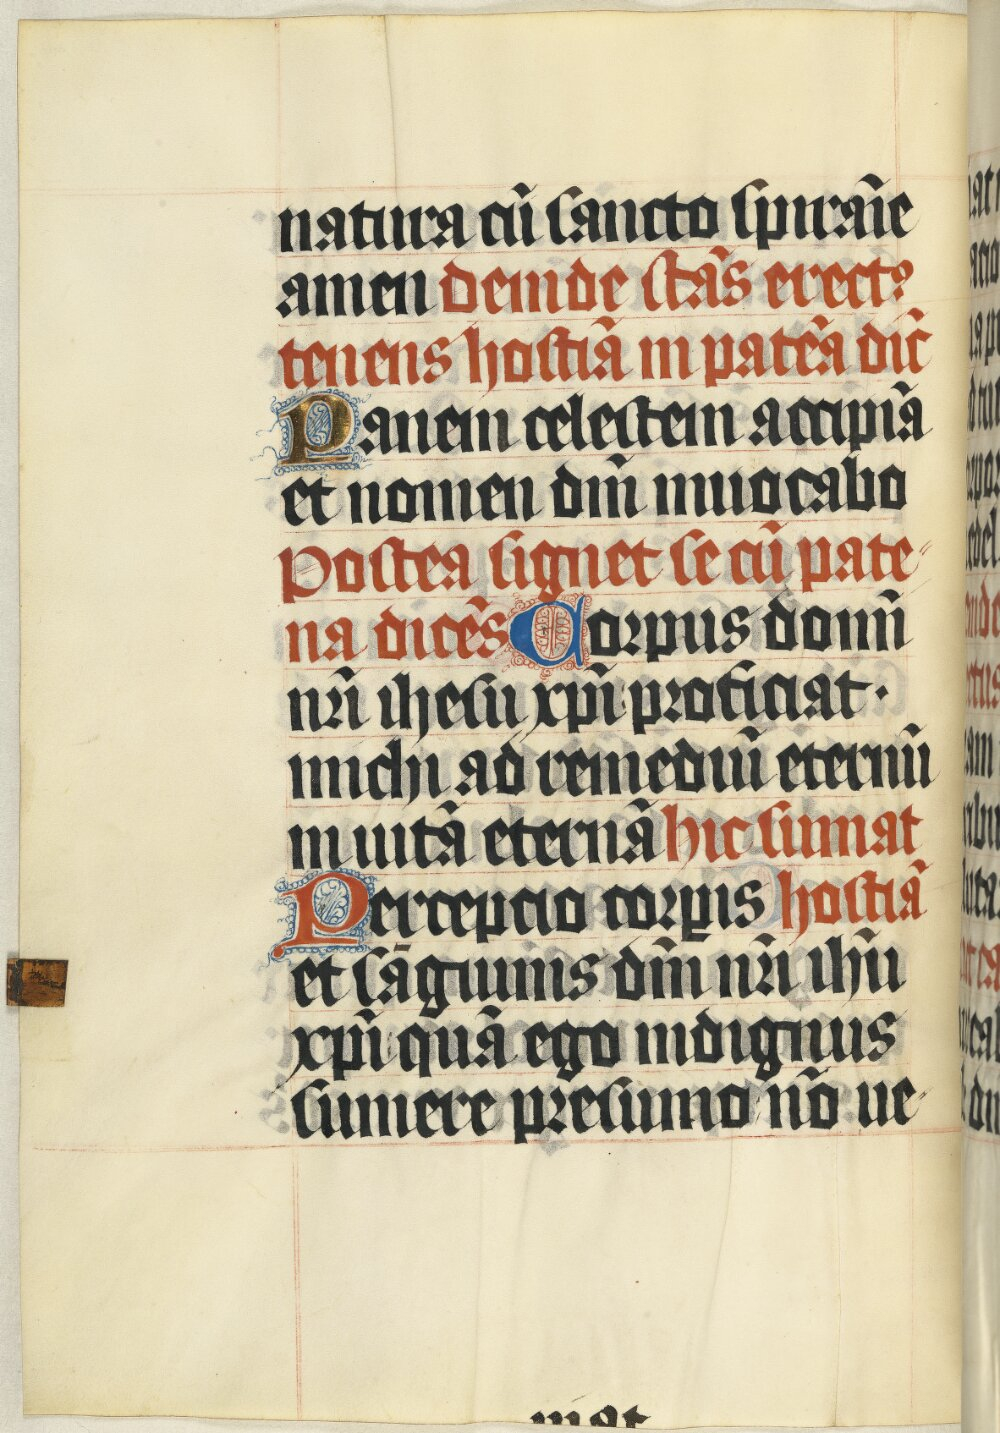 natura cū sancto spiraīe
amen deinde stās erectꝰ
tenens hostiā in patēa dic̄
Panem celestem accipiā
et nomen dn̄i inuocabo
Postea signet se cū pate-
na dicēs Corpus domī
nr̄i ihesu xp̄i proficiat ·
michi ad remediū eternū
in uitā eternā hic sumat
Percepcio corꝑis hostiā
et sāguinis dn̄i nr̄i ihū
xp̄i quā ego indignus
sumere presumo nō ue-